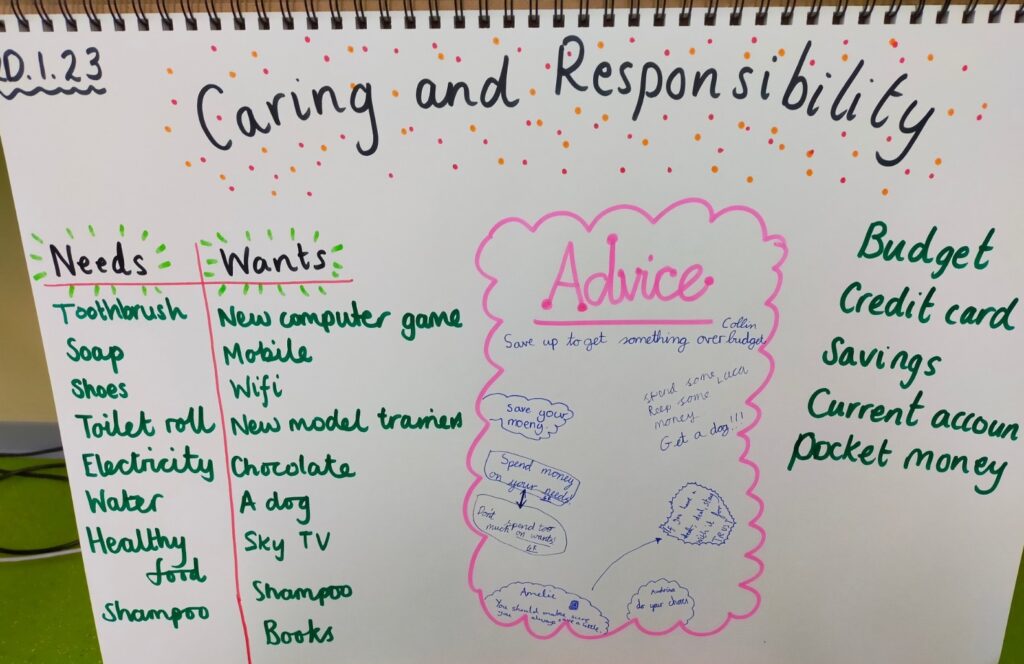 0.1.23
Caring and Responsibility
Needs
Toothbrush
Soap
Shoes
Toilet roll
Electricity
Water
Healthy
food
Shampoo
Wants
New computer game
Mobile
Wifi
New model trainers
Chocolate
A dog
Sky TV
Shampoo
Books
Advice
Collin
Save up to get something over budget
Save your
moeng.
Spend some
Keep some
money
Get a dog!!!
Spend money
on your needs
Don't spend too
much on wants!
If you want a
stay
with it for
TRUST
Amelie
You should make sure
you always save a little.
do your chores
Budget
Credit card
Savings
Current accoun
Pocket money